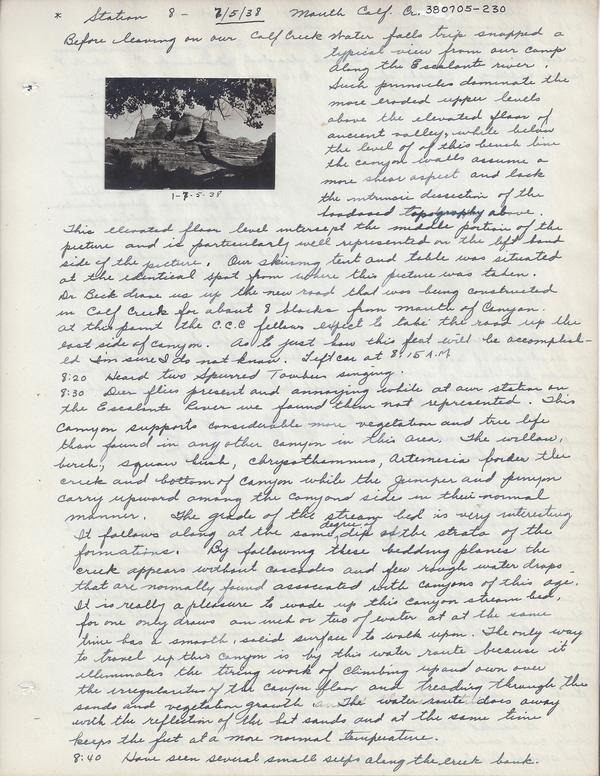 * Station 8 - 7/5/38 Mouth Calf. Cr. 380705-230
Before leaving on our Calf Creek Water falls trip snapped a
typical view from our camp
along the Escalante river.
Such pinnacles dominate the
more eroded upper levels
above the elevated floor of
ancient valley, while below
the level of of this bench line
the canyon walls assume a
more shear aspect and lack
the intrinsic dissection of the
topography above.
1-7-5-38
This elevated floor level intersept the middle portion of the
picture and is particularly well represented on the left hand
side of the picture. Our skinning tent and table was situated
at the identical spot from where this picture was taken.
Dr Beck drove us up the new road that was being constructed
in Calf Creek for about 8 blocks from mouth of Canyon.
At this point the C.C.C fellows expect to take the road up the
east side of Canyon. As to just how this feat will be accomplish-
ed I'm sure I do not know. Left car at 8:15 A.M
8:20 Heard two Spurred Towhees singing.
8:30 Deer flies present and annoying while at our station on
the Escalante River we found them not represented. This
Canyon supports considerable more vegetation and tree life
than found in any other canyon in this area. The willow,
birch, squaw bush, Chrysothamnus, Artemesia border the
creek and bottom of Canyon while the juniper and pinyon
carry upward among the canyon side in their normal
manner. The grade of the stream bed is very interesting
It follows along at the same degree of dip as the strata of the
formations. By following these bedding planes the
creek appears without cascades and few rough water drops
that are normally found associated with canyons of this age.
It is really a pleasure to wade up this canyon stream bed,
for one only draws an inch or two of water at at the same
time has a smooth, solid surface to walk upon. The only way
to travel up this canyon is by this water route because it
illuminates the tiring work of climbing up and own over
the irregularities of the canyon floor and treading through the
sands and vegetation growth. The water route does away
with the reflection of the hot sands and at the same time
keeps the feet at a more normal temperature.
8:40 Have seen several small seeps along the creek bank.